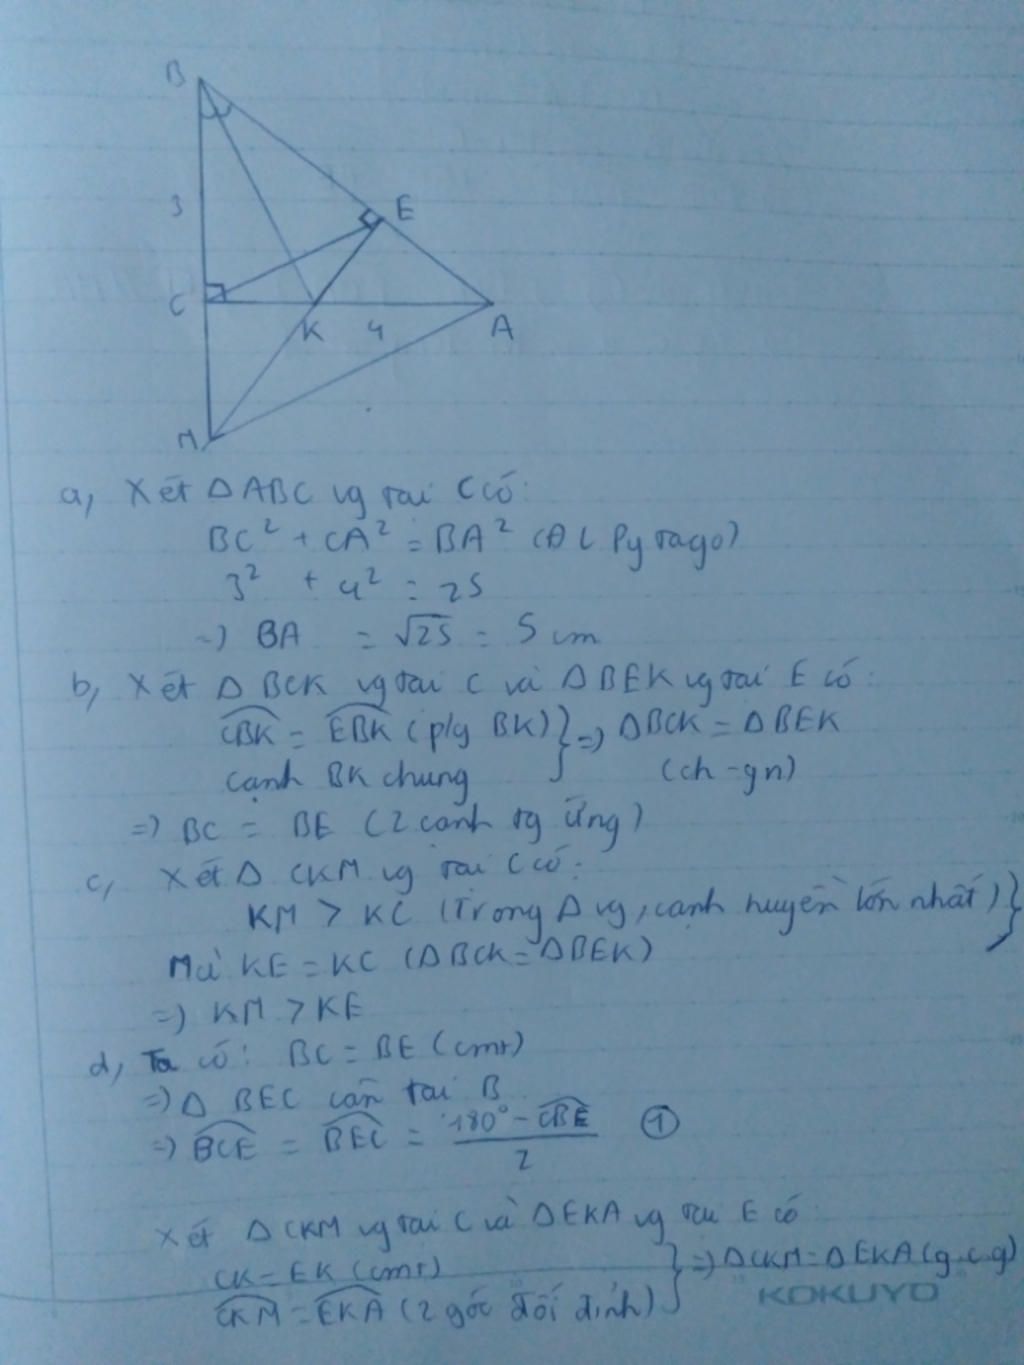 B
3
E
C
K
4
A
M
a, Xét △ABC vg tại C có:
BC² + CA² = BA² (ĐL Pytago)
3² + 4² = 25
=> BA = √25 = 5 cm
b, Xét △ BCK vg tại C và △BEK vg tại E có:
CBK = EBK (p/g BK) } => △BCK = △BEK
cạnh BK chung (ch-gn)
=> BC = BE (2 cạnh tg ứng)
c, Xét △ CKM vg tại C có:
KM > KC (Trong △ vg, cạnh huyền lớn nhất) }
Mà KE = KC (△BCK = △BEK)
=> KM > KE
d, Ta có: BC = BE (cmt)
=> △ BEC cân tại B
=> BCE = BEC = 180° - CBE / 2 ①
Xét △CKM vg tại C và △EKA vg tại E có:
CK = EK (cmt) } => △CKM = △EKA (g.c.g)
CKM = EKA (2 góc đối đỉnh)
KOKUYO